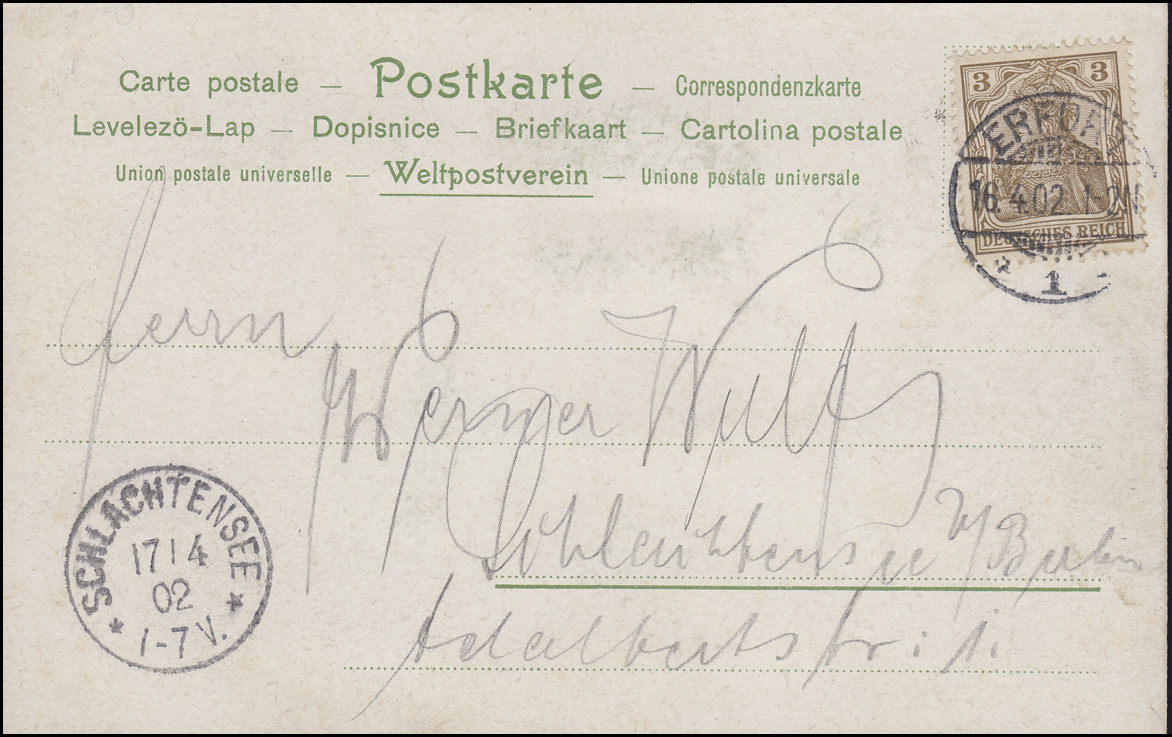 Carte postale – Postkarte – Correspondenzkarte
Levelezö-Lap – Dopisnice – Briefkaart – Cartolina postale
Union postale universelle – Weltpostverein – Unione postale universale
3 3
DEUTSCHES REICH
ERFU
16.4.02 1-2N
* 1
Herrn
Werner Wulff
Schlachtensee b/Berlin
Adalbertstr.
SCHLACHTENSEE
17 4
02
* 1-7V. *